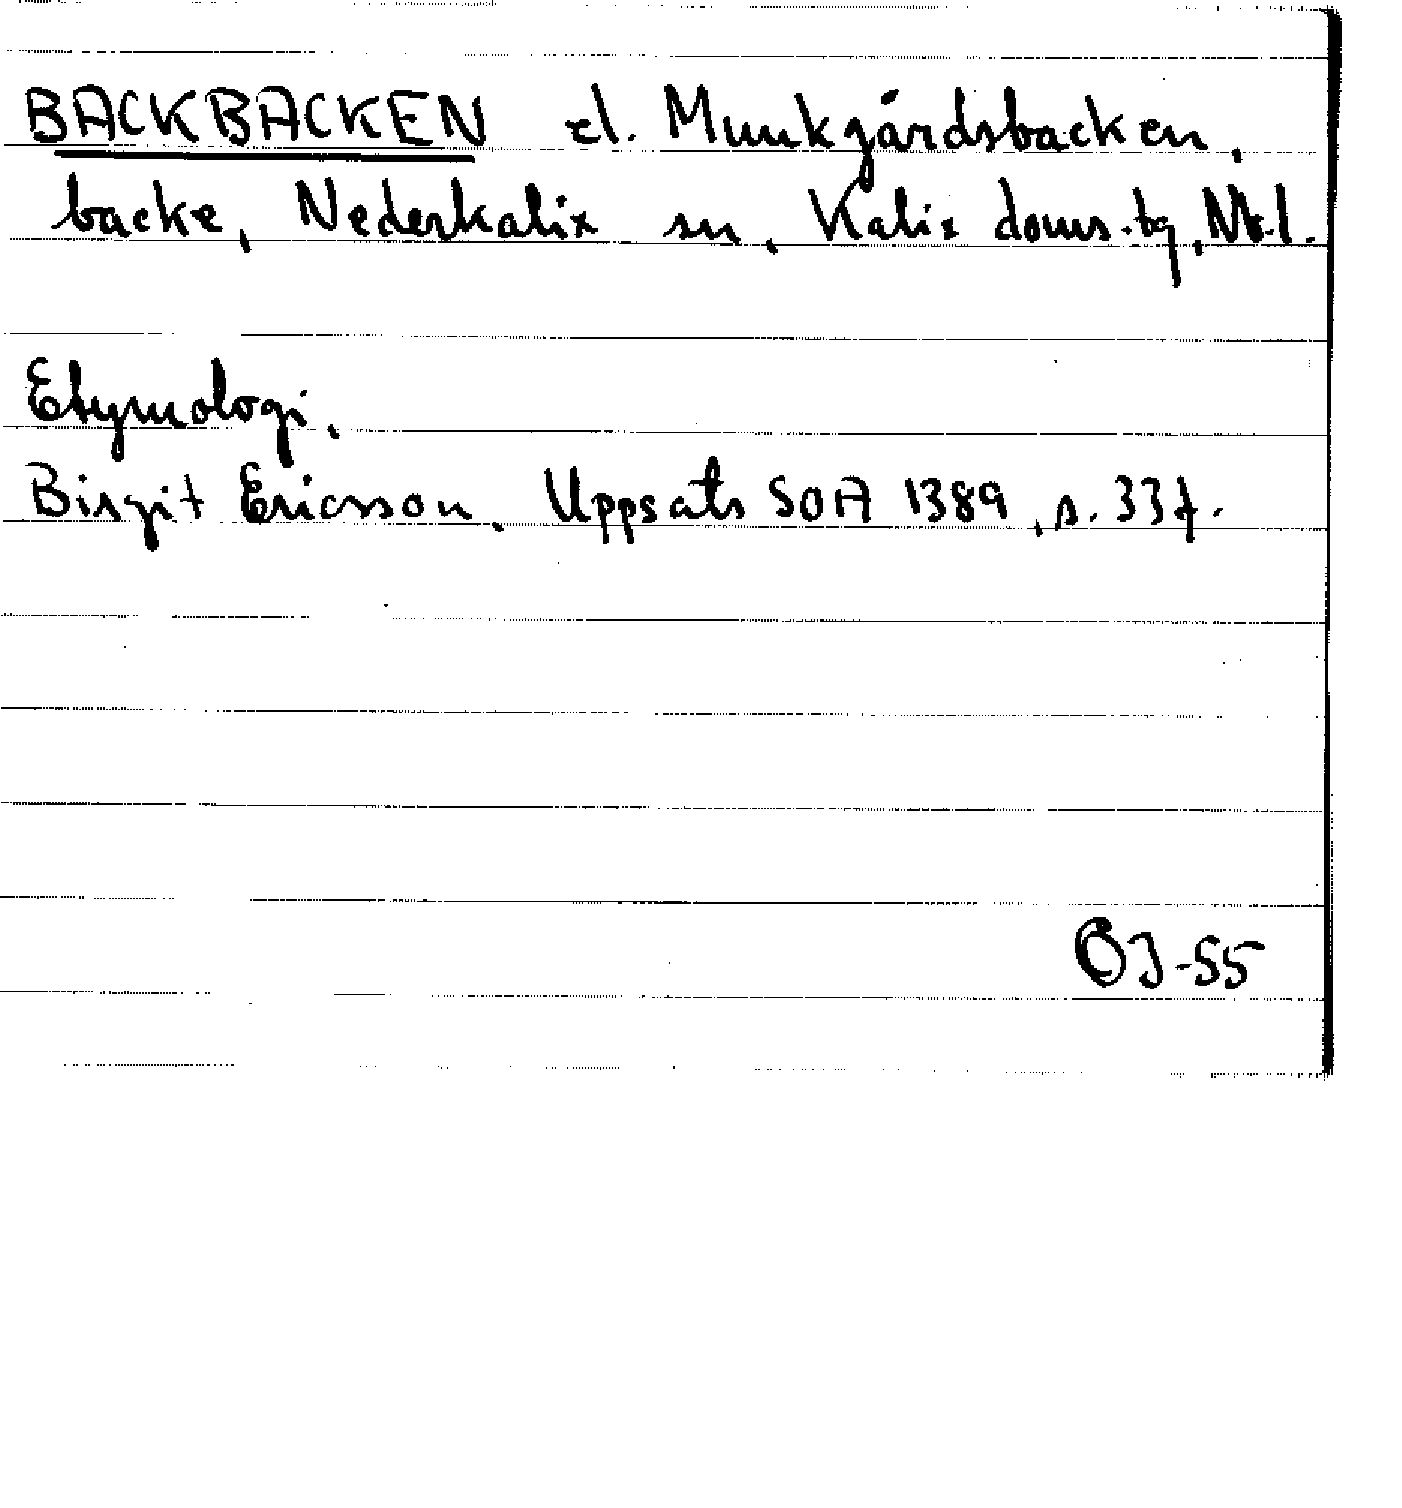 BACKBACKEN el. Munkgårdsbacken,
backe, Nederkalix sn, Kalix doms.tg, Nb.l.
Etymologi.
Birgit Ericsson, Uppsats SOA 1389, s. 33f.
ÖJ-55